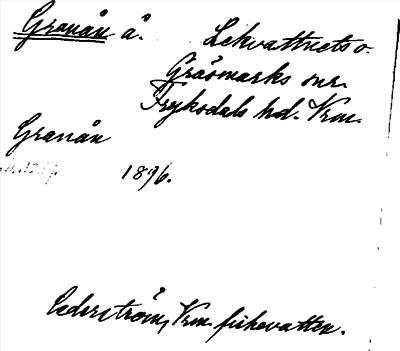 Granån å. Lekvattnets o.
Gräsmarks snr.
Fryksdals hd. Vrm.
Granån
1896.
Cederström, Vrm. fiskevatten.